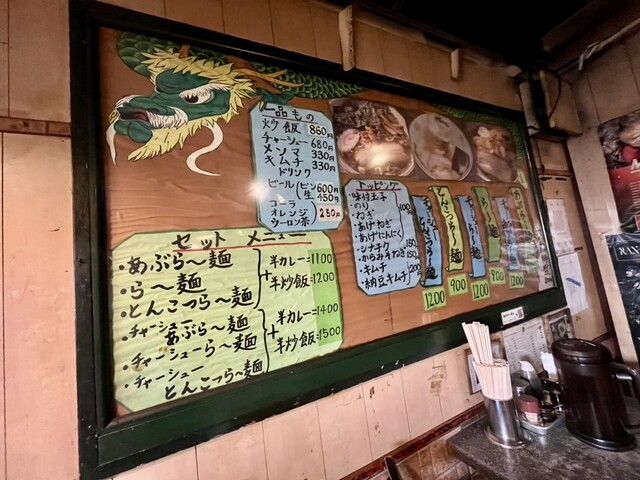 一品もの
炒飯 860円
チャーシュー 680円
メンマ 330円
キムチ 330円
ドリンク
ビール(ビン 600円
生 450円
コーラ
オレンジ 250円
ウーロン茶
トッピング
・味付玉子
・のり
・ねぎ 100円
・あげねぎ
・あげにんにく
・シナチク 150
・からみそねぎ 150
・キムチ 200
・納豆キムチ
とんこつら〜麺
900
1200
1200
900
1200
セット メニュー
・あぶら〜麺
・ら〜麺
・とんこつら〜麺
+
半カレー:1100
半炒飯:1200
・チャーシュー
あぶら〜麺
・チャーシューら〜麺
・チャーシュー
とんこつら〜麺
+
半カレー:1400
半炒飯:1500